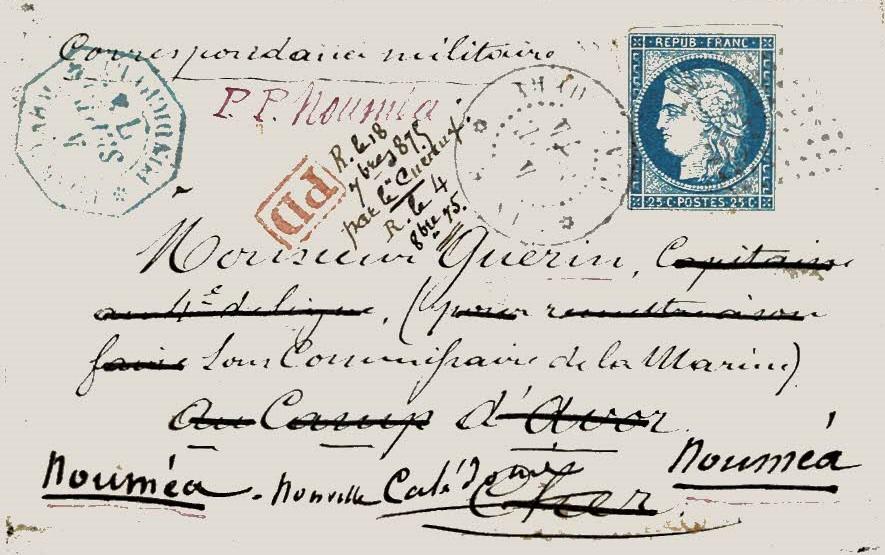 Correspondance militaire
P.P. Nouméa.
REPUB·FRANC·
25 C·POSTES·25 C
PD
R. le 18
7bre 1875
par le Curieux.
R. le 4
8bre 75.
Monsieur Guérin, Capitaine
au 4e de ligne, (pour remettre à son
frère Sous Commissaire de la Marine)
au Camp d'Avor
Nouméa - Nouvelle Calédonie Cher Nouméa